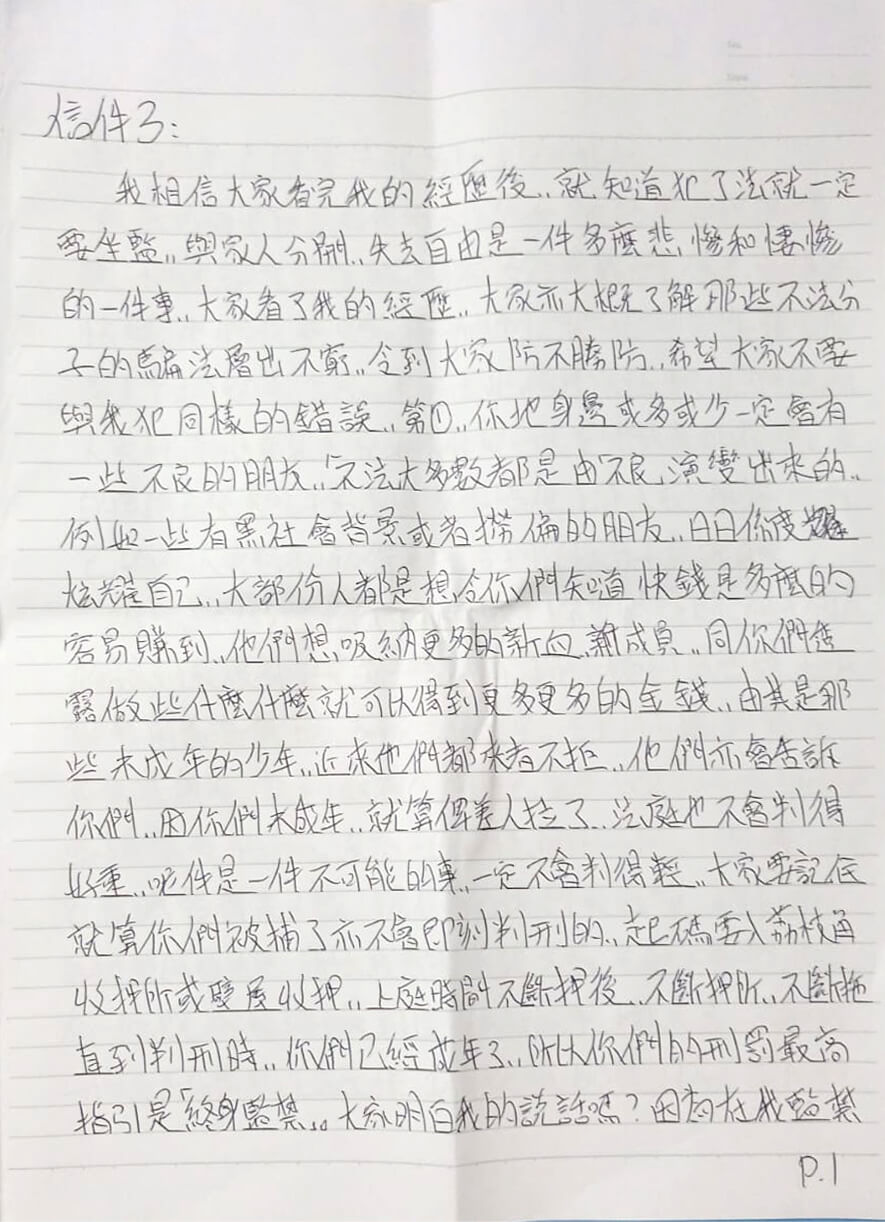 信件3:
我相信大家看完我的經歷後,,就知道犯了法就一定
要坐監,,與家人分開,,失去自由是一件多麼悲慘和悽慘
的一件事,,大家看了我的經歷,,大家亦大概了解那些不法分
子的騙法層出不窮,,令到大家防不勝防,,希望大家不要
與我犯同樣的錯誤,,第①,,你地身邊或多或少一定會有
一些不良的朋友,,「不法大多數都是由「不良」演變出來的,,
例如一些有黑社會背景或者撈偏的朋友,,日日你度
炫耀自己,,大部份人都是想令你們知道快錢是多麼的
容易賺到,,他們想吸納更多的新血,新成員,,同你們透
露做些什麼什麼就可以得到更多更多的金錢,,由其是那
些未成年的少年,,近來他們都來者不拒,,他們亦會告訴
你們,,因你們未成年,,就算俾差人拉了,,法庭也不會判得
好重,,呢件是一件不可能的事,,一定不會判得輕,,大家要記住
就算你們被捕了亦不會即刻判刑的,,起碼要入荔枝角
收押所或壁屋收押,,上庭時間不斷押後,,不斷押所,,不斷拖
直到判刑時,,你們已經成年了,,所以你們的刑罰最高
指引是「終身監禁,,。大家明白我的說話嗎?因為在我監禁
P.1